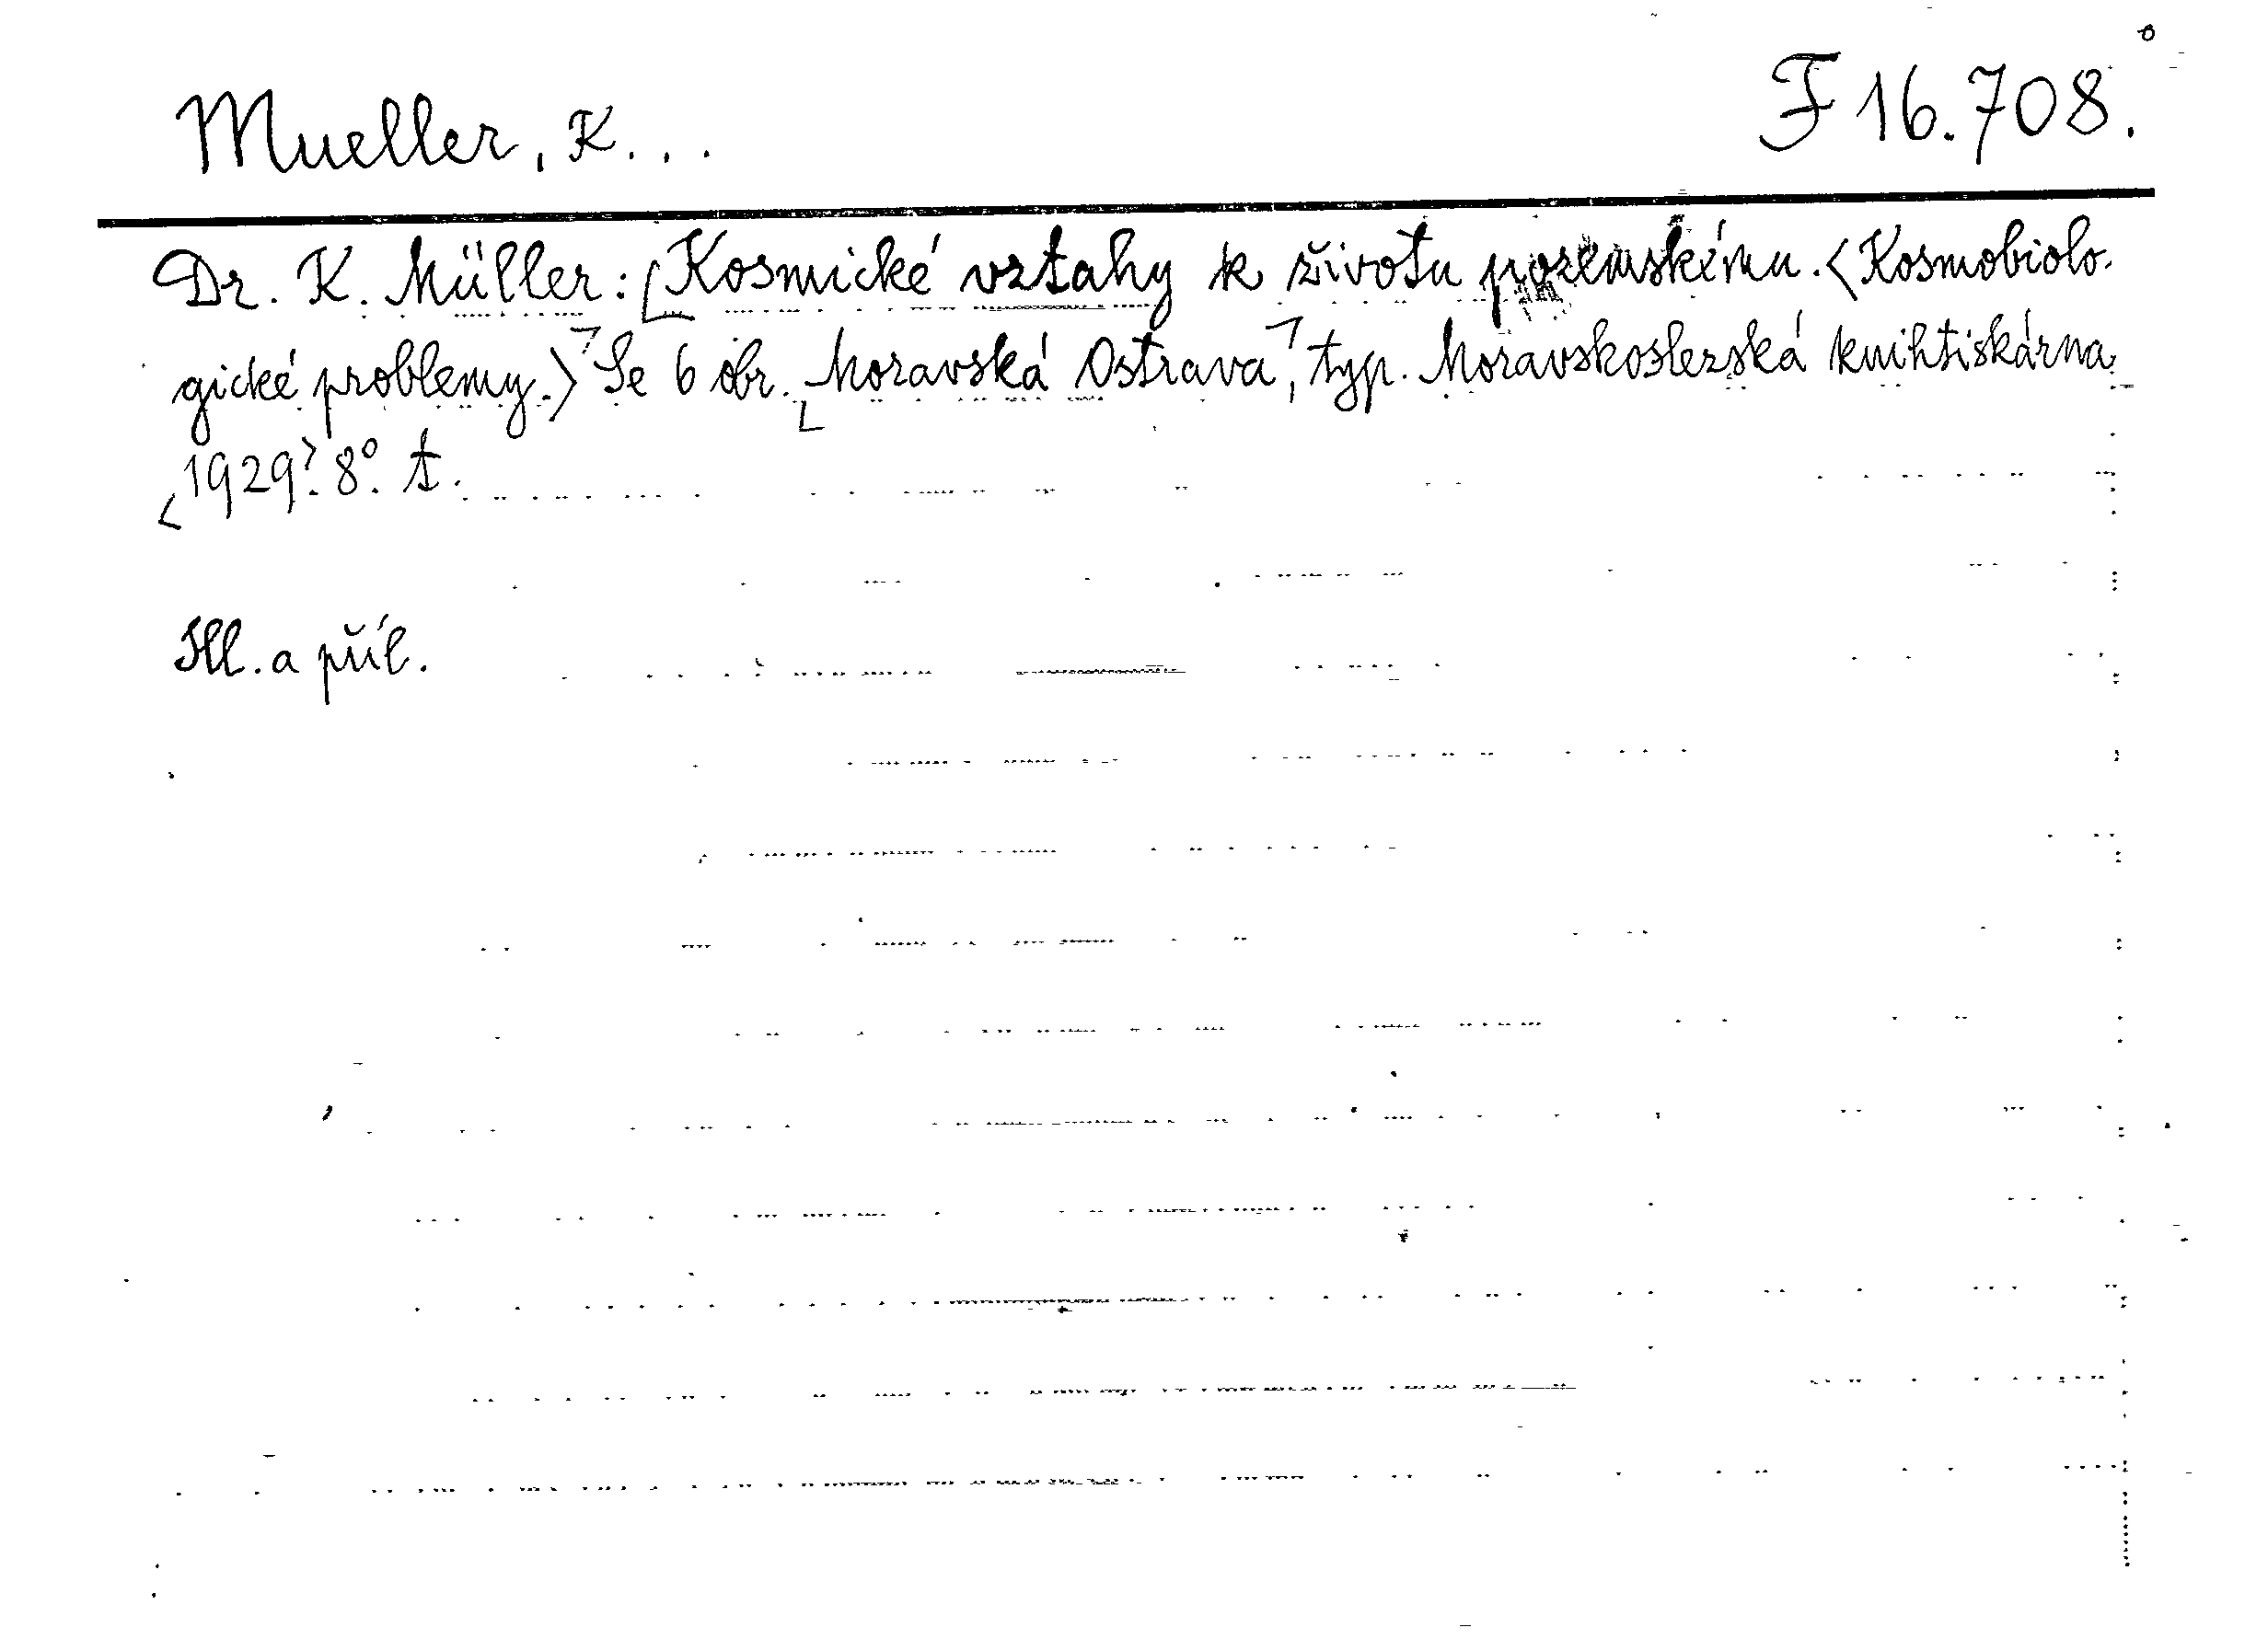 Mueller, K... F 16.708.
Dr. K. Müller: [Kosmické vztahy k životu pozemskému. <Kosmobiolo-
gické problemy.>] Se 6 obr. [Moravská Ostrava], typ. Moravskoslezská knihtiskárna
<1929>. 8°. t.
Ill. a příl.